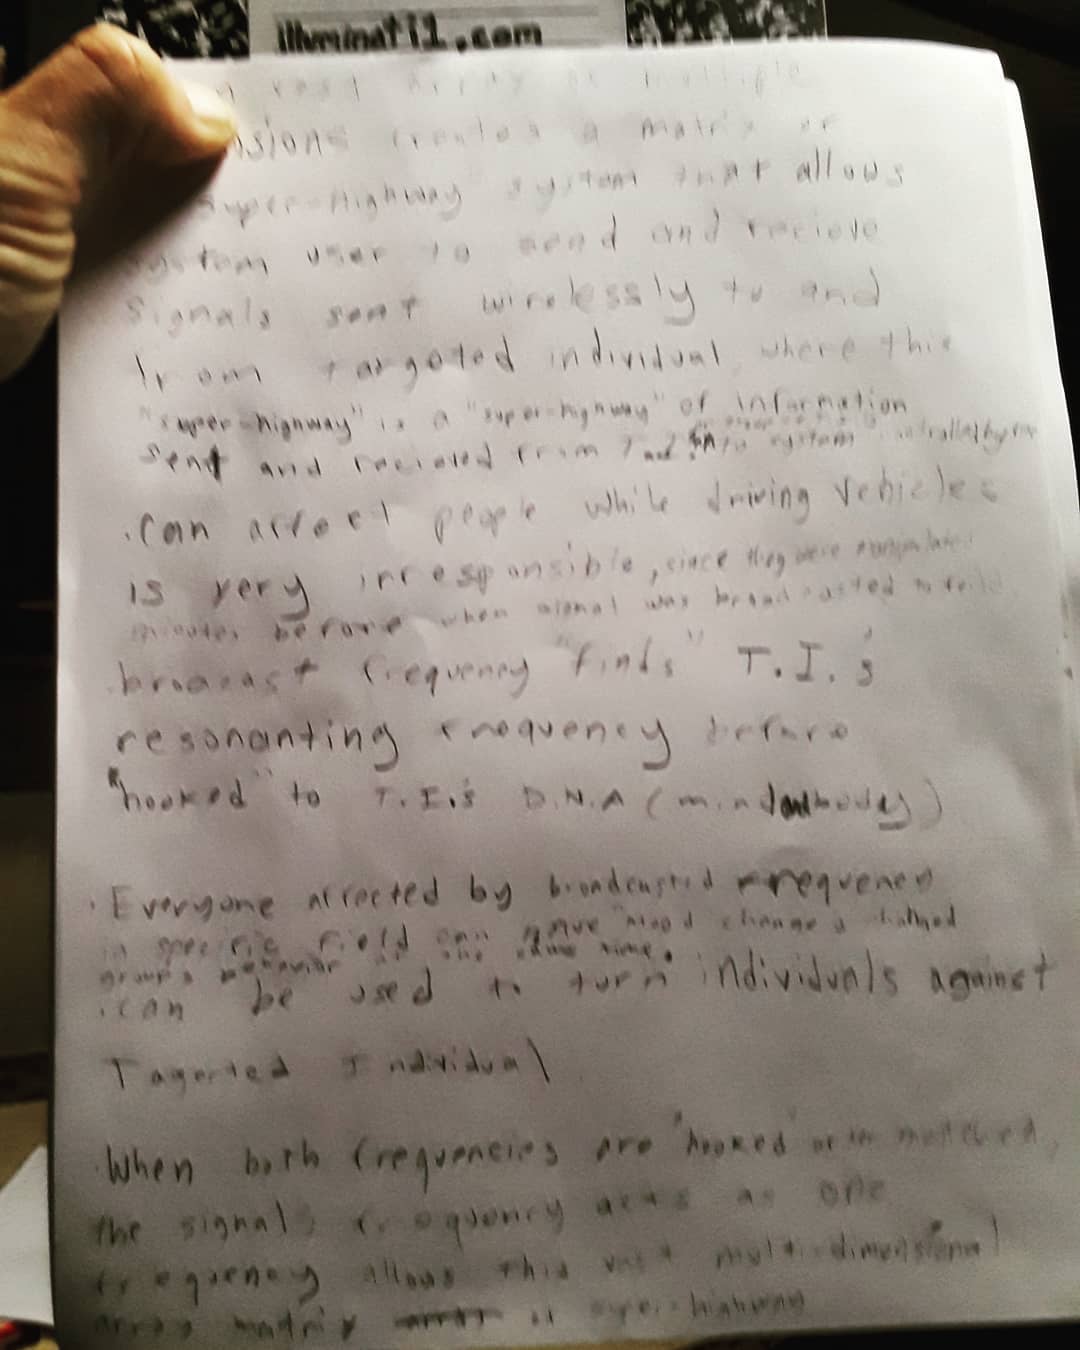 illuminati1.com
vast array of multiple
nsions creates a matrix or
super-highway" system that allows
system user to send and recieve
signals sent wirelessly to and
from targeted individual, where this
"super-highway" is a "super-highway" of information
sent and recieved from T and into system controlled by
. can affect people while driving vehicles
is very irresponsible, since they were manipulated
minutes before when signal was broadcasted to
broadcast frequency "finds" T.I.'s
resonanting frequency before
"hooked" to T.I.'s D.N.A (mind and body)
. Everyone affected by broadcasted frequency
in specific field can have mood changed
groups behavior at the same time.
. can be used to turn individuals against
Tagerted Individual
. When both frequencies are "hooked" or matched,
the signals frequency acts as one
frequency allows this vast multi-dimensional
array matrix or super-highway